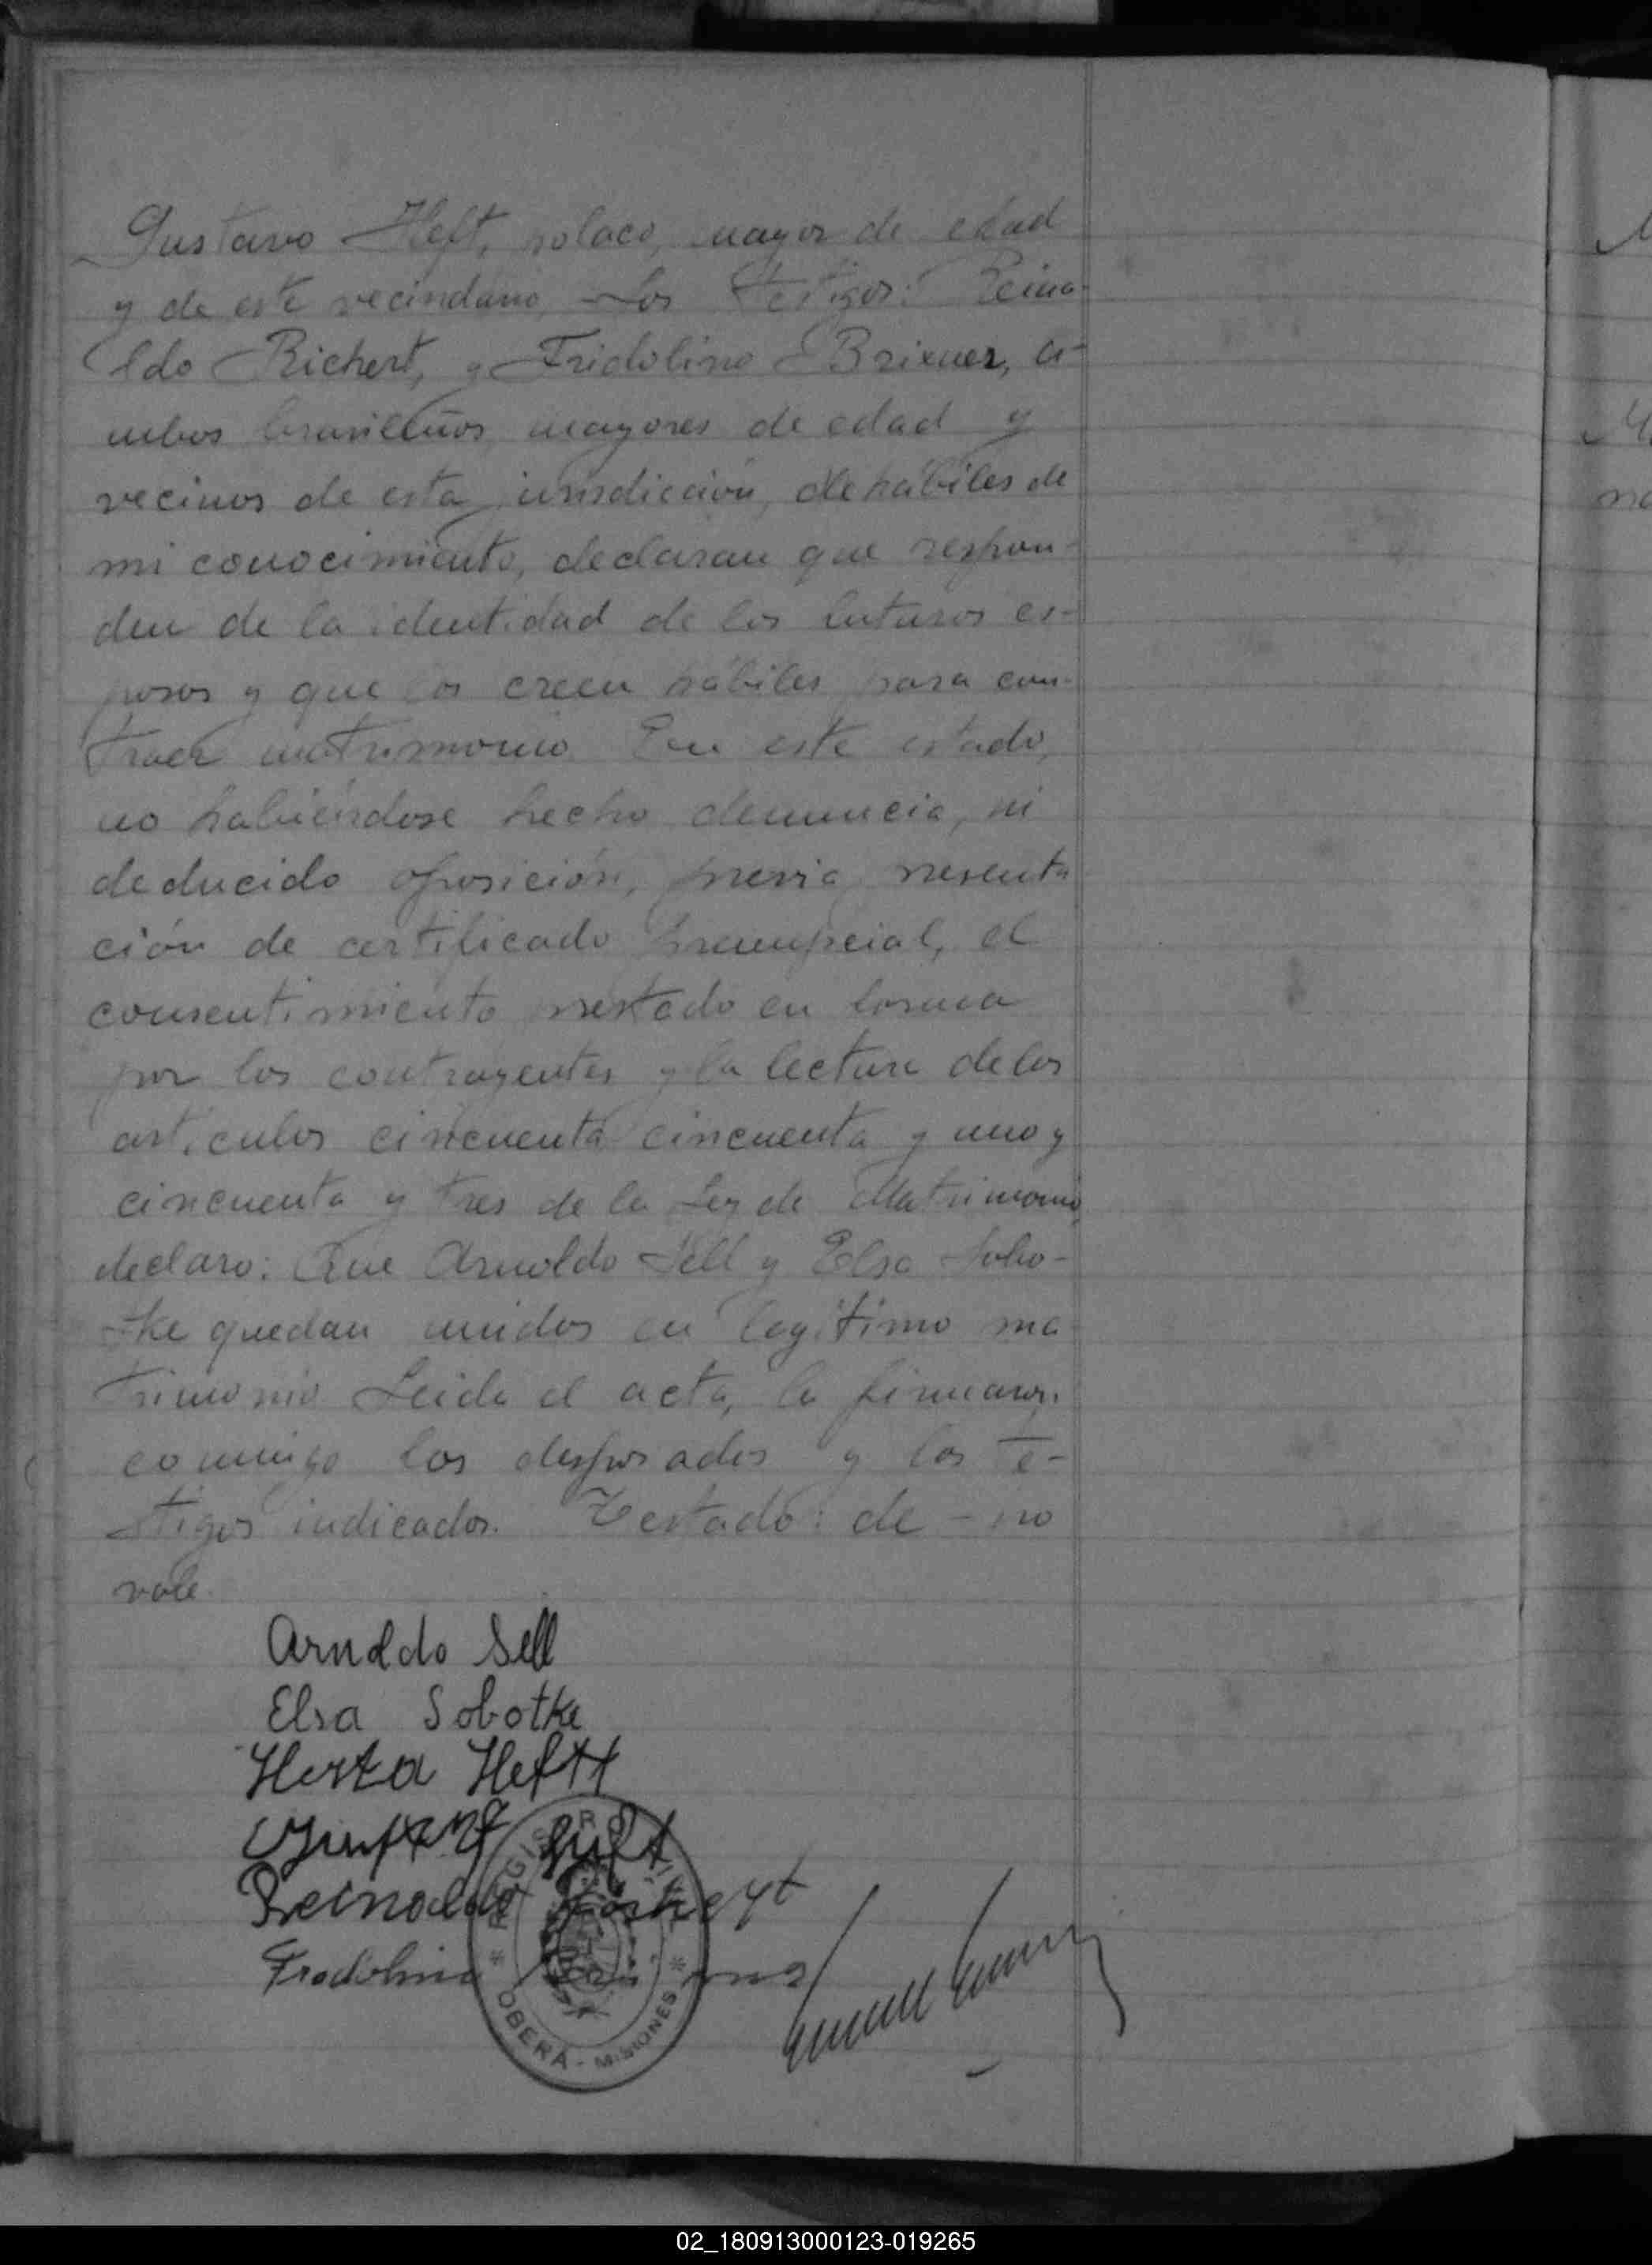 Gustavo Heft, polaco, mayor de edad
y de este vecindario. Los testigos: Reina-
ldo Richert, y Fridolino Brixner, a-
mbos brasileños mayores de edad y
vecinos de esta jurisdicción, de hábiles de
mi conocimiento, declaran que respon-
den de la identidad de los futuros es-
posos y que los creen hábiles para con-
traer matrimonio. En este estado,
no habiéndose hecho denuncia, ni
deducido oposición, previa presenta
ción de certificado prenupcial, el
consentimiento prestado en forma
por los contrayentes y la lectura de los
artículos cincuenta cincuenta y uno y
cincuenta y tres de la Ley de Matrimonio,
declaro: Que Arnoldo Sell y Elsa Sobo-
tke quedan unidos en legítimo ma
trimonio. Leida el acta, la firmaron
conmigo los desposados y los te-
stigos indicados. Testado: de - no
vale.
Arnoldo Sell
Elsa Sobotke
Herta Heftt
Reinoldo
Fradolino
REGISTRO CIVIL
* OBERA - MISIONES *
M
02_180913000123-019265